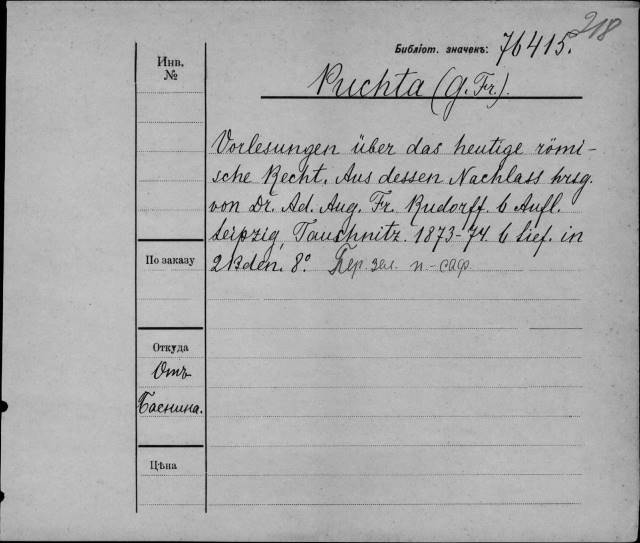 218
Библіот. значекъ: 76415.
Инв. №
Puchta (G. Fr.).
Vorlesungen über das heutige römi-
sche Recht. Aus dessen Nachlass hrsg.
von Dr. Ad. Aug. Fr. Rudorff. 6 Aufl.
Leipzig, Tauchnitz. 1873-74. 6 Lief. in
2 Bden. 8°. Пер. зел. п-саф.
По заказу
Откуда
Отъ
Баснина.
Цѣна